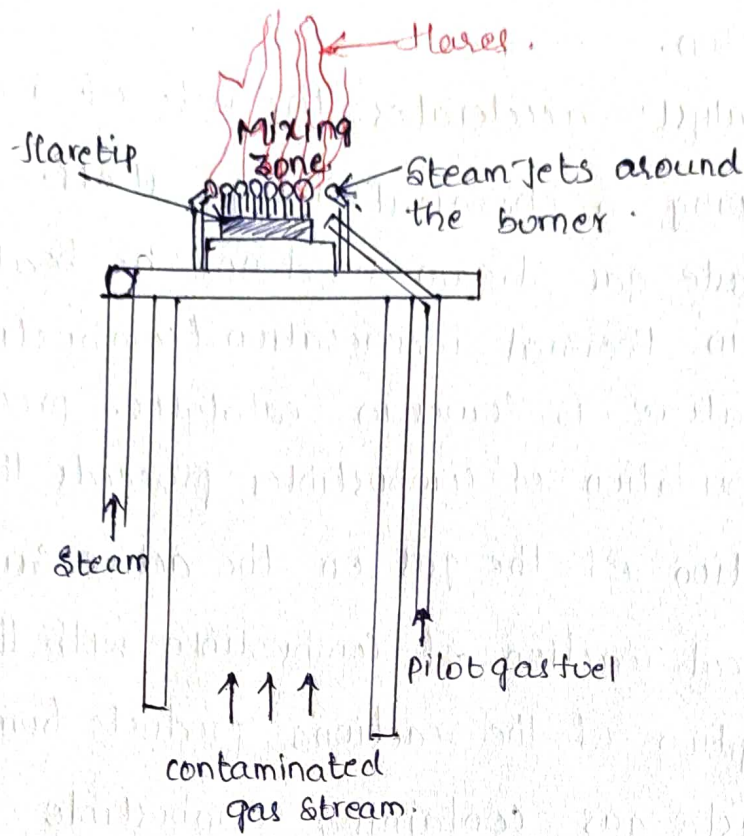 Flares.
Mixing
zone.
flaretip
Steam Jets around
the burner.
Steam
pilot gas fuel
contaminated
gas stream.